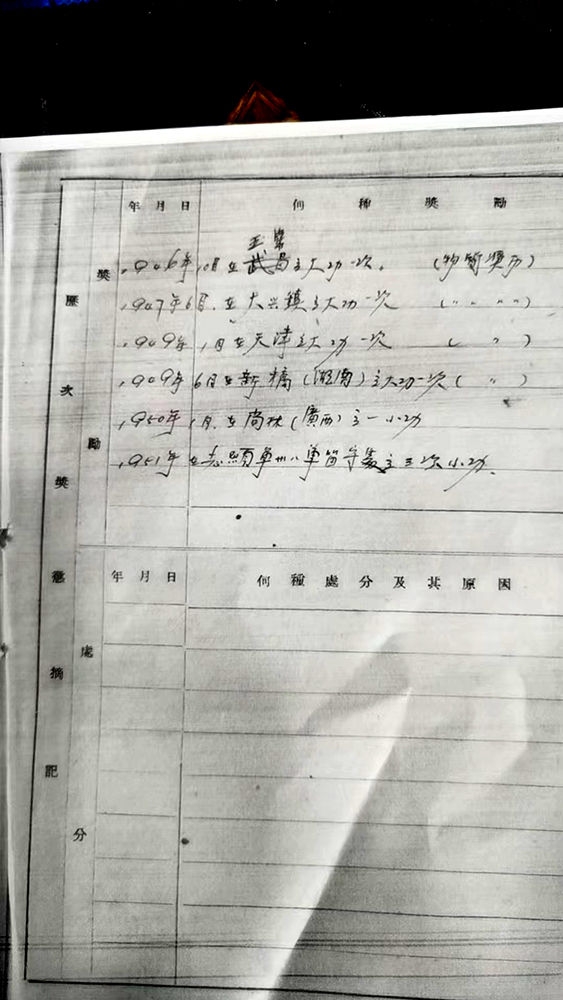 歷次獎懲摘記
獎勵
年月日 何種獎勵
1946年10月在武昌立大功一次。(物質獎历)
1947年6月.在大兴鎮立大功一次 (〃 〃 〃 〃)
1949年1月在天津立大功一次 ( 〃 )
1949年6月在新橋(湖南)立大功一次( 〃 )
1950年1月.在尚林(廣西)立一小功
1951年在 卅八軍留守 立三次小功.
處分
年月日 何種處分及其原因